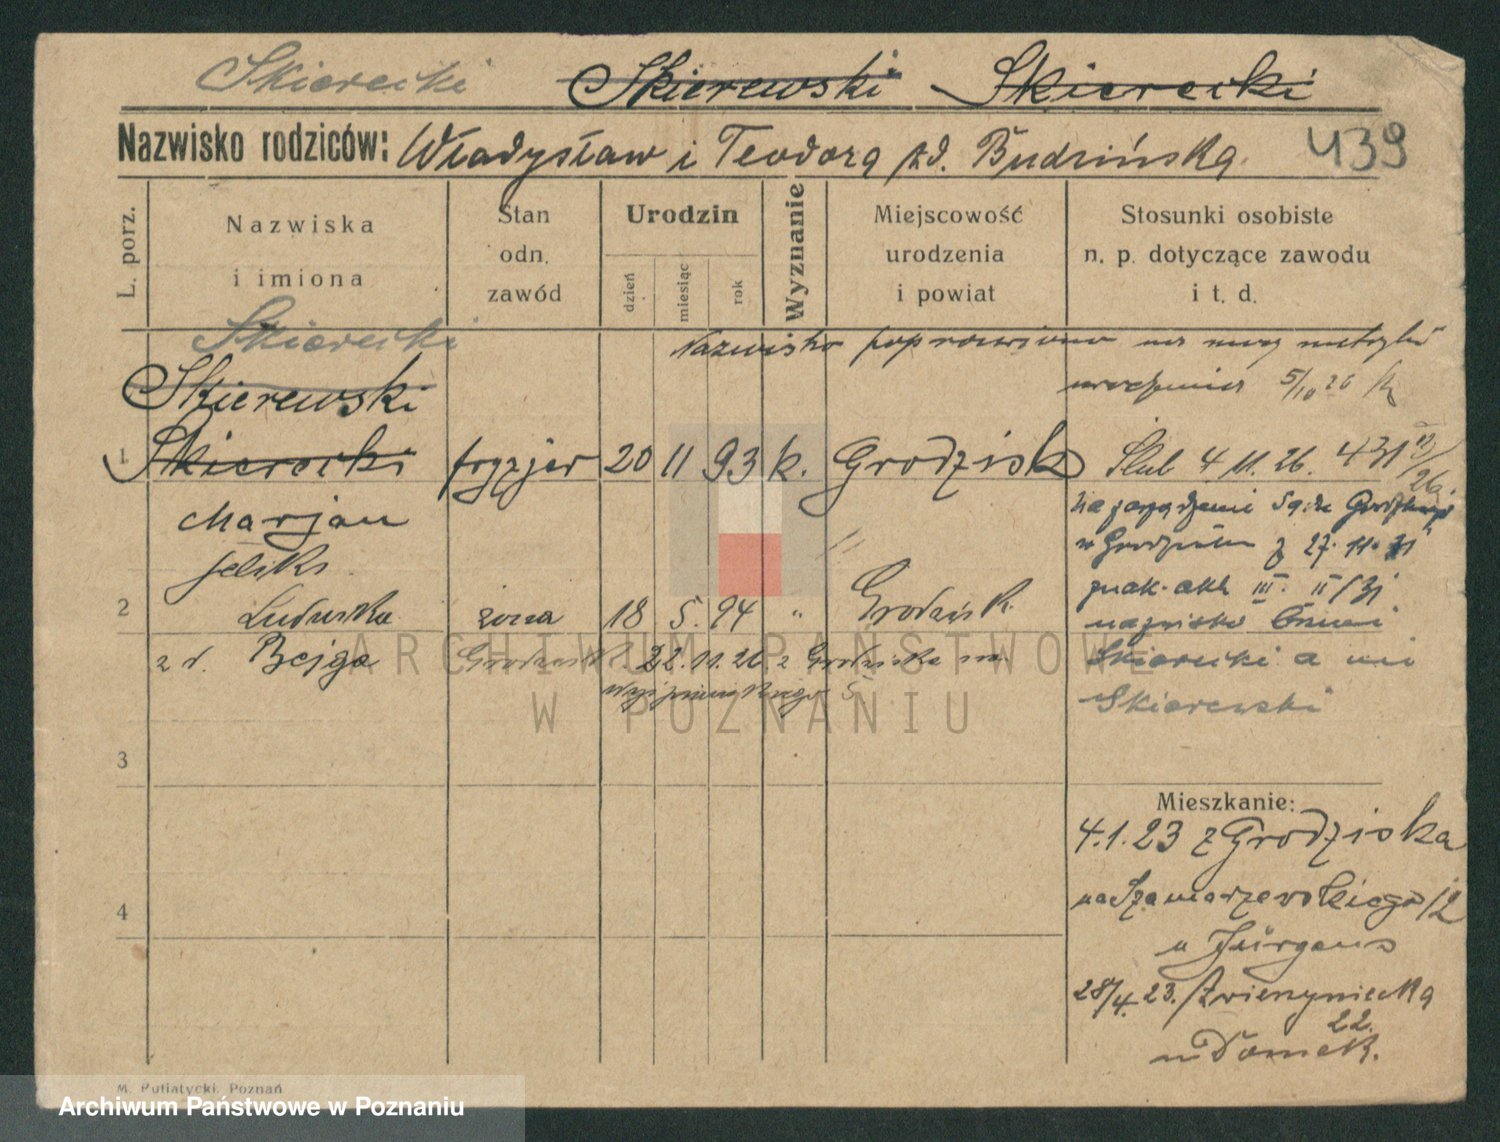 Skierecki Skierewski Skierecki
Nazwisko rodziców: Władysław i Teodora zd. Budzińska
439
L. porz.
Nazwiska
i imiona
Stan
odn.
zawód
Urodzin
dzień
miesiąc
rok
Wyznanie
Miejscowość
urodzenia
i powiat
Stosunki osobiste
n. p. dotyczące zawodu
i t. d.
Skierecki
Nazwisko poprawiono na metryki
urodzenia 5/10 26
Skierewski
1 Skierecki fryzjer 20 11 93 k. Grodzisk
Ślub 4 11. 26. 431
26
Marjan
Feliks
Na zarządzenie Sądu Grodzkiego
w Grodzisku z 27. 11. 31
znak. akt III. II/31
nazwisko brzmi
Skierecki a nie
Skierewski
2 Ludwika żona 18 5. 94 " Grodzisk.
z d. Bejga Grodzisk 22.11.26 z Grodziska
3
4
Mieszkanie:
4.1.23 z Grodziska
na Szamarzewskiego 12
u Jürgens
28/4. 23. Zwierzyniecka
22.
u Domek.
M. Putiatycki, Poznań
ARCHIWUM PAŃSTWOWE
W POZNANIU
Archiwum Państwowe w Poznaniu